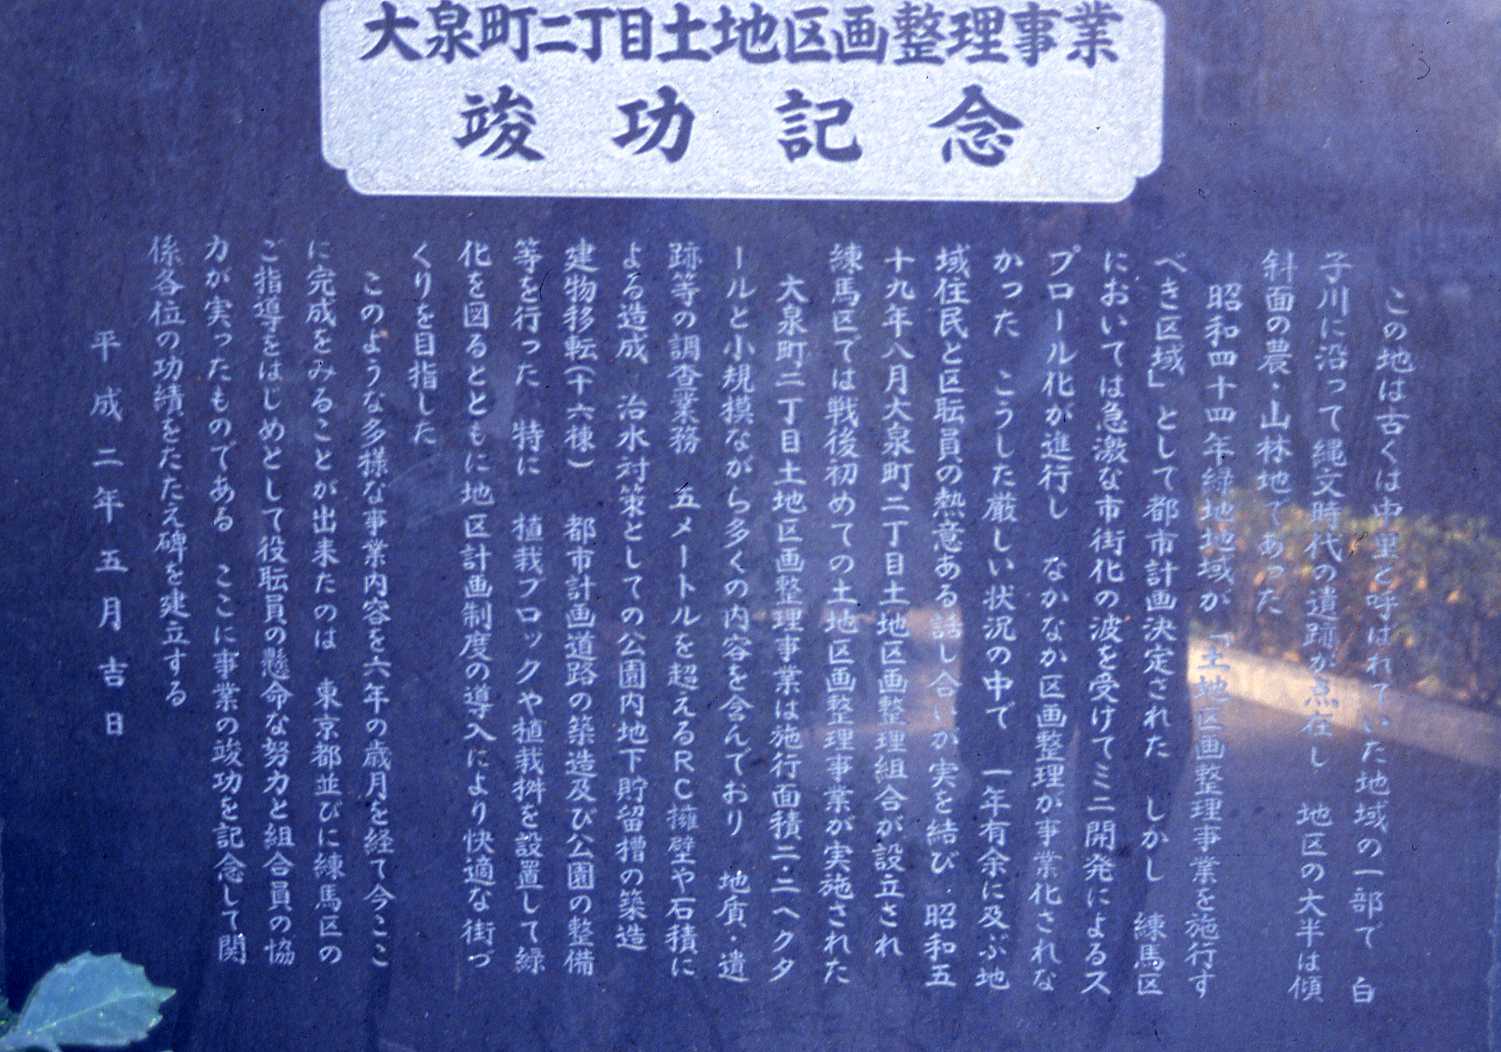 大泉町二丁目土地区画整理事業
竣功記念
この地は古くは中里と呼ばれていた地域の一部で 白
子川に沿って縄文時代の遺跡が点在し 地区の大半は傾
斜面の農・山林地であった
昭和四十四年緑地地域が「土地区画整理事業を施行す
べき区域」として都市計画決定された しかし 練馬区
においては急激な市街化の波を受けてミニ開発によるス
プロール化が進行し なかなか区画整理が事業化されな
かった こうした厳しい状況の中で 一年有余に及ぶ地
域住民と区転員の熱意ある話し合いが実を結び 昭和五
十九年八月大泉町二丁目土地区画整理組合が設立され
練馬区では戦後初めての土地区画整理事業が実施された
大泉町二丁目土地区画整理事業は施行面積二・二ヘクタ
ールと小規模ながら多くの内容を含んでおり 地質・遺
跡等の調査業務 五メートルを超えるRC擁壁や石積に
よる造成 治水対策としての公園内地下貯留槽の築造
建物移転(十六棟) 都市計画道路の築造及び公園の整備
等を行った 特に 植栽ブロックや植栽桝を設置して緑
化を図るとともに地区計画制度の導入により快適な街づ
くりを目指した
このような多様な事業内容を六年の歳月を経て今ここ
に完成をみることが出来たのは 東京都並びに練馬区の
ご指導をはじめとして役転員の懸命な努力と組合員の協
力が実ったものである ここに事業の竣功を記念して関
係各位の功績をたたえ碑を建立する
平成二年五月吉日